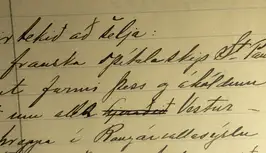 tekið að selja:
franska spítalaskips St. Pau
farmi þess og áhöldum
um alla Vestur-
í Rangárvallasýslu